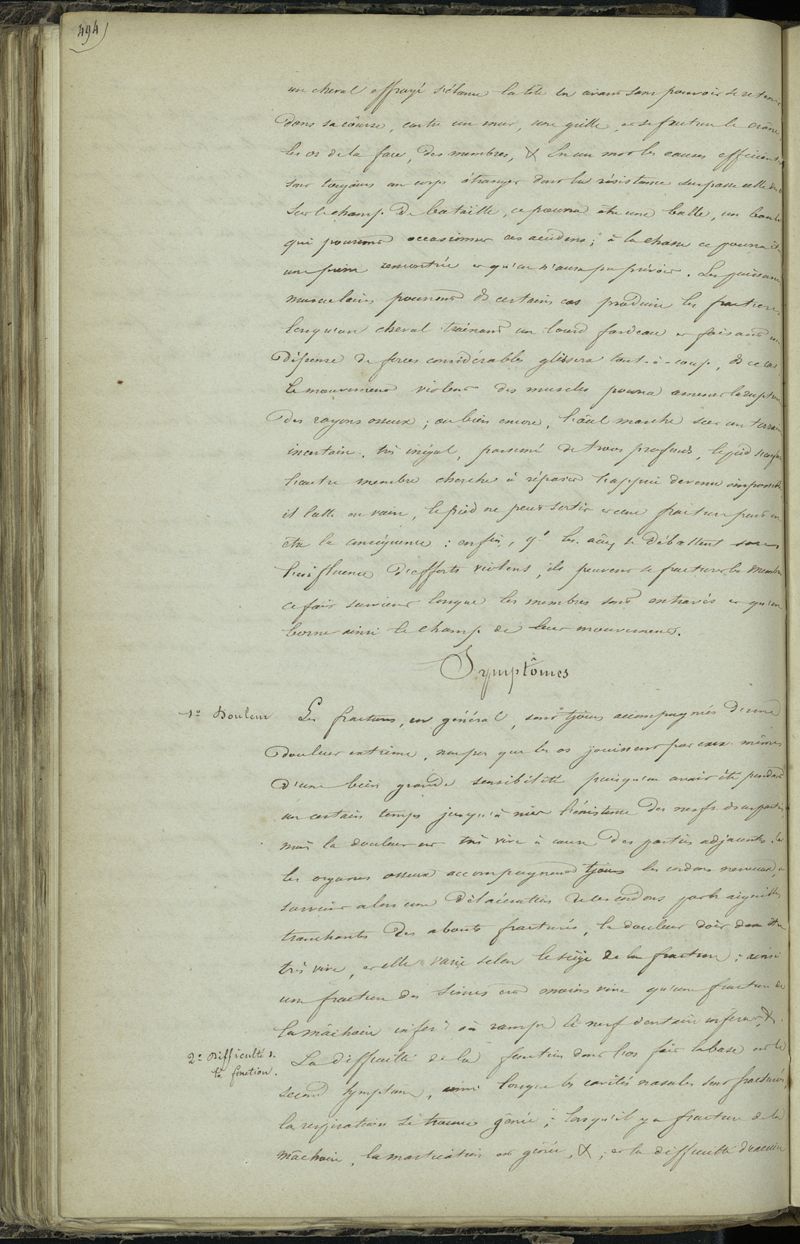 494)
un cheval effrayé s'élance la tête en avant sans pouvoir se retenir
dans sa course, contre un mur, une grille, et se fracture le crâne
les os de la face, des membres, & En un mot les causes efficientes
sont toujours un corps étranger dont la résistance surpasse celle des
Sur le champ de bataille, ce pourra être une balle, un boulet
qui pourront occasionner ces accidens ; à la chasse ce pourra être
une pierre rencontrée et qu'on n'aura pu prévoir. Les puissances
musculaires pourront ds certains cas produire les fractures
lorsqu'un cheval traînant un lourd fardeau et faisant une
dépense de forces considérables glissera tout-à-coup, ds ce cas
le mouvement violent des muscles pourra amener la rupture
des rayons osseux ; ou bien encore, l'anal marche sur un terrain
incertain, très inégal, parsemé de trous profonds, le pied
l'autre membre cherche à réparer l'appui devenu impossible
il lutte en vain, le pied ne peut sortir et une fracture peut en
être la conséquence : enfin, qd les aux se débattent sous
l'influence d'efforts violens, ils peuvent se fracturer les membres
ce fait survient lorsque les membres sont entravés et qu'on
borne ainsi le champ de leur mouvement.
Symptômes
1º Douleur Les fractures, en général, sont tjours accompagnées d'une
douleur extrême, non pas que les os jouissent par eux mêmes
d'une bien grande sensibilité puisqu'on avait été pendant
un certain temps jusqu'à nier l'existence des nerfs
mais la douleur est très vive à cause des parties adjacentes.
les organes osseux accompagnent tjours les cordons nerveux,
survient alors une dilacération de ces cordons par les aiguilles
tranchantes des abouts fracturés, la douleur doit donc être
très vive, et elle varie selon le siège de la fracture ; ainsi
une fracture des sinus est moins vive qu'une fracture de
la mâchoire inférre où rampe le nerf dentaire inférieur, &.
2º Difficulté ds
la fonction.
La difficulté de la fonction dont l'os fait la base est le
second symptôme, ainsi lorsque les cavités nasales sont fracturées,
la respiration se trouve gênée ; lorsqu'il y a fracture de la
mâchoire, la mastication est gênée, & ; et la difficulté d'exécuter